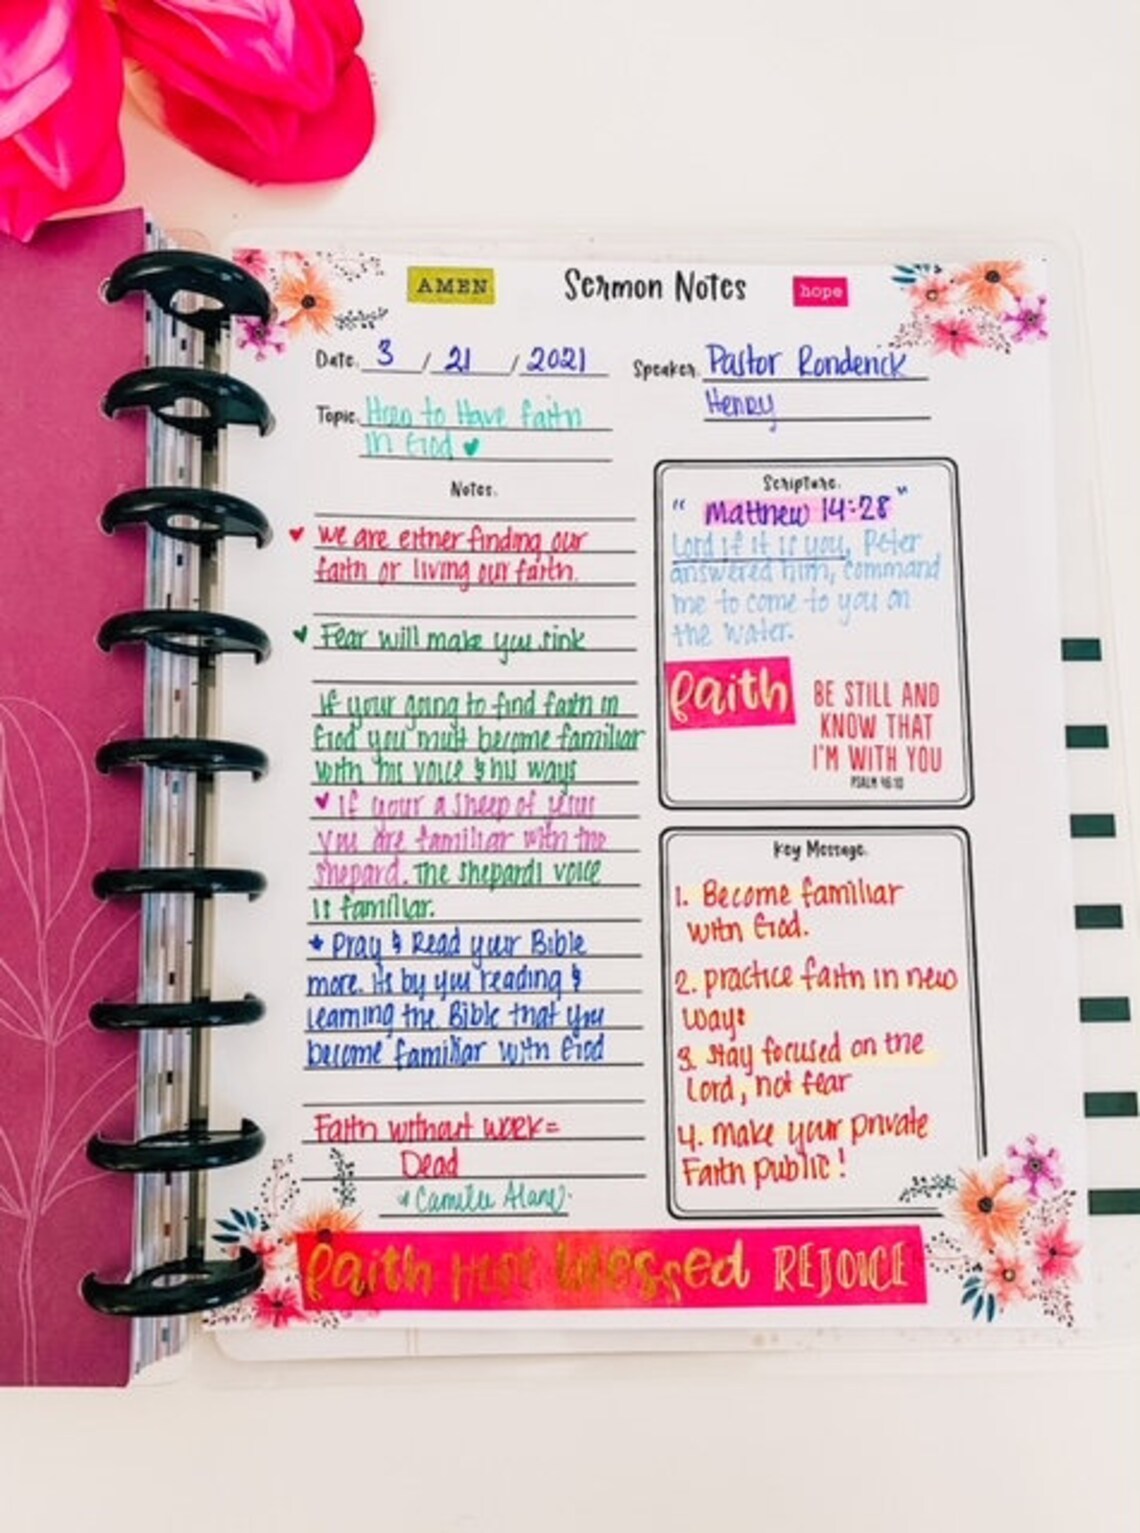 AMEN
Sermon Notes
hope
Date. 3 / 21 / 2021
Speaker. Pastor Ronderick
Henry
Topic. How to Have faith
in God
Notes.
We are either finding our
faith or living our faith.
Fear will make you sink
If your going to find faith in
God you must become familiar
with his voice & his ways
If your a sheep of Jesus
you are familiar with the
shepard. The shepards voice
is familiar.
* Pray & Read your Bible
more. Its by you reading &
learning the Bible that you
become familiar with God
Faith without work =
Dead
Camille
Scripture.
" Matthew 14:28 "
Lord if it is you, Peter
answered him, command
me to come to you on
the water.
faith
BE STILL AND
KNOW THAT
I'M WITH YOU
PSALM 46:10
Key Message.
1. Become familiar
with God.
2. practice faith in new
ways
3. Stay focused on the
Lord, not fear
4. make your private
Faith public!
faith HOPE blessed REJOICE